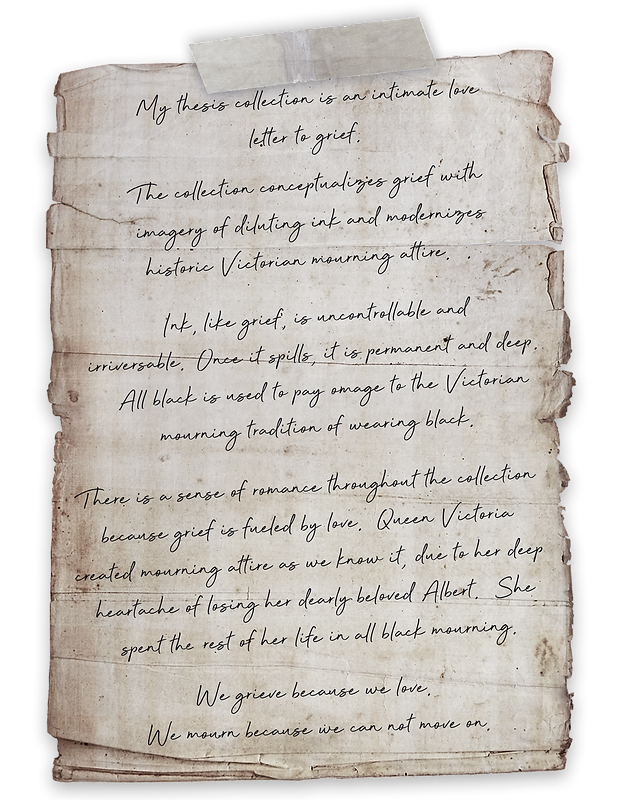 My thesis collection is an intimate love
letter to grief.
The collection conceptualizes grief with
imagery of diluting ink and modernizes
historic Victorian mourning attire.
Ink, like grief, is uncontrollable and
irriversable. Once it spills, it is permanent and deep.
All black is used to pay omage to the Victorian
mourning tradition of wearing black.
There is a sense of romance throughout the collection
because grief is fueled by love. Queen Victoria
created mourning attire as we know it, due to her deep
heartache of losing her dearly beloved Albert. She
spent the rest of her life in all black mourning.
We grieve because we love.
We mourn because we can not move on.